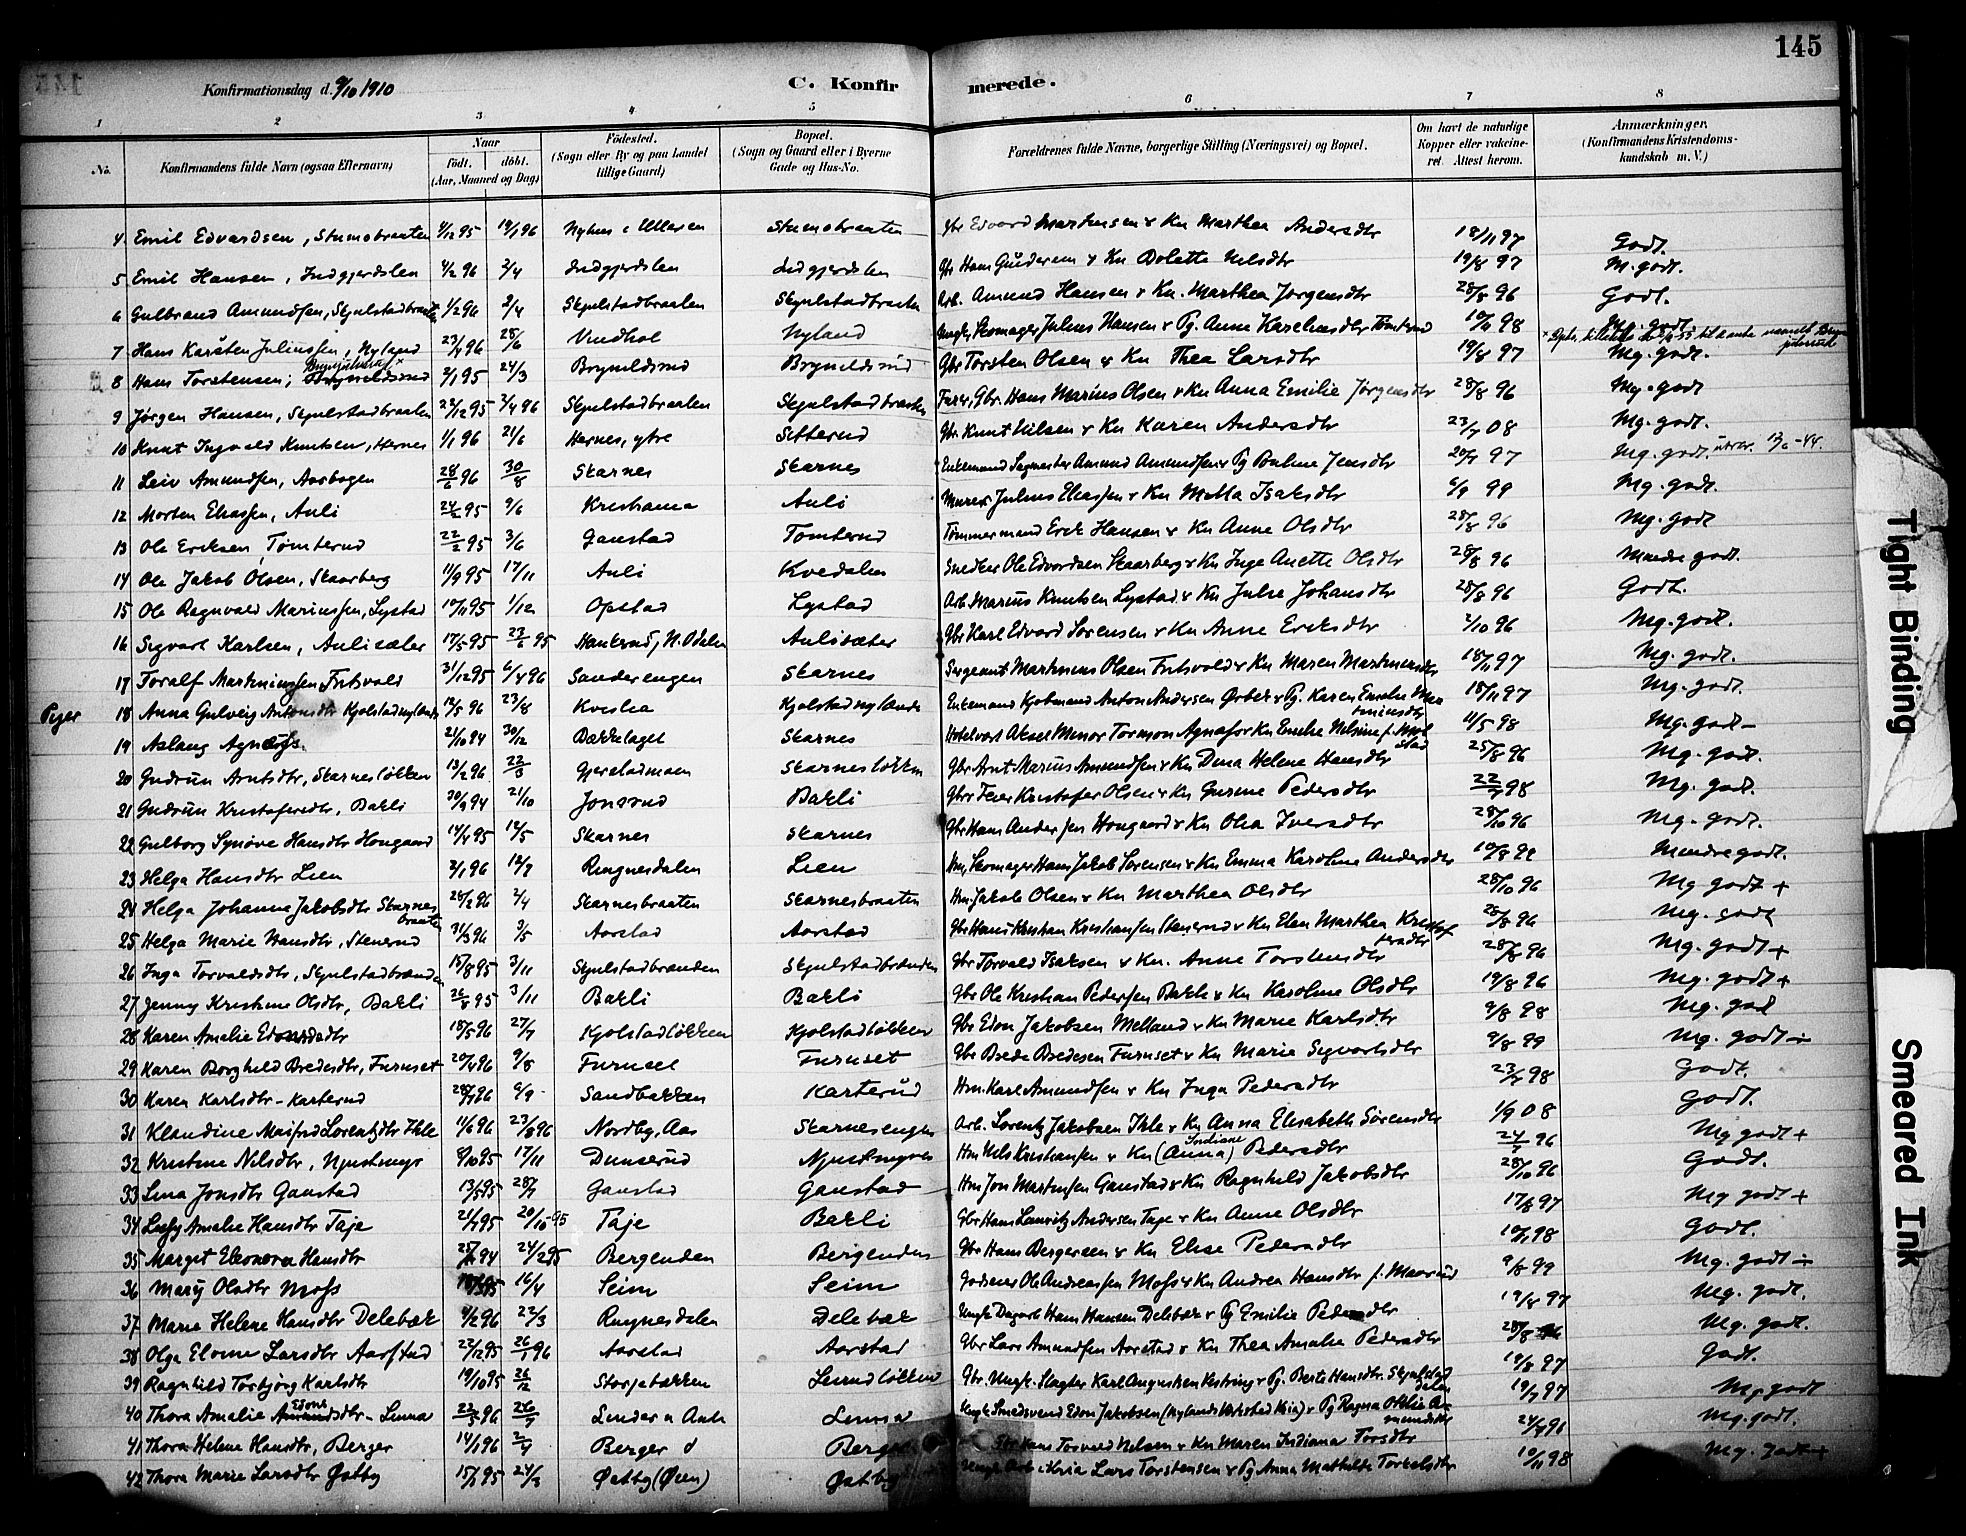 145
Konfirmationsdag d. 9/10 1910
C. Konfirmerede.
1 2 3 4 5 6 7 8
No.
Konfirmandens fulde Navn (ogsaa Efternavn)
Naar
födt. döbt.
(Aar, Maaned og Dag)
Födested.
(Sogn eller By og paa Landet
tillige Gaard)
Bopæl.
(Sogn og Gaard eller i Byerne
Gade og Hus-No.
Forældrenes fulde Navne, borgerlige Stilling (Næringsvei) og Bopæl.
Om havt de naturlige
Kopper eller vakcine-
ret. Attest herom.
Anmærkninger.
(Konfirmandens Kristendoms-
kundskab m. V.)
4 Emil Edvardsen, Stumobraaten 4/12 95 19/1 96 Stumobraaten Gbr Edvard Martinsen & Kn Marthea Andersdtr 18/11 97 Godt.
5 Emil Hansen, Indgjerdslen 4/2 96 2/4 Indgjerdslen Indgjerdslen Gbr Hans Gundersen & Kn Dolette Nilsdtr 19/8 97 M. godt.
6 Gulbrand Amundsen, Skjulstadbraaten 1/2 96 2/4 Skjulstadbraaten Skjulstadbraaten Arb. Amund Hansen & Kn. Marthea Jørgensdtr 28/8 96 Godt.
7 Hans Karsten Juliussen, Nyland 23/4 96 28/6 Nyland Ungk. Skomager Julius Hansen & Pg. Anne Karelinsdtr Tømterud 10/11 98 Mg. godt
8 Hans Torstensen, Bryneldsrud 2/1 95 24/3 Bryneldsrud Bryneldsrud Gbr Torsten Olsen & Kn Thea Larsdtr 19/8 97 Mg. godt.
9 Jørgen Hansen, Skjulstadbraaten 22/12 95 3/4 96 Skjulstadbraaten Skjulstadbraaten Gbr. Hans Marius Olsen & Kn Anna Emilie Jørgensdtr 28/8 96 Mg. godt
10 Knut Ingvald Knutsen, Hernes 1/1 96 21/6 Hernes, ytre Setterud Gbr. Knut Nilsen & Kn Karen Andersdtr 23/7 08 Mg. godt.
11 Leiv Amundsen, Aarbogen 28/6 96 30/8 Skarnes Skarnes Enkemand Sagmester Amund Amundsen & Pg Jensdtr 20/7 97 Mg. godt.
12 Morten Eliassen, Auli 24/2 95 9/6 Kristiania Auli Murer Julius Eliassen & Kn Mella Isaksdtr 6/9 99 Mg. godt.
13 Ole Ericksen Tømterud 22/2 95 3/6 Ganstad Tomterud Tømmermand Erick Hansen & Kn Anne Olsdtr 28/8 96 Mg. godt
14 Ole Jakob Olsen, Skaarberg 11/9 95 17/11 Auli Kvedalen Snedker Ole Edvardsen Skaarberg & Kn Inga Anette Olsdtr 28/8 96 Mindre godt.
15 Ole Ragnvald Mariussen, Lystad 10/11 95 1/12 Opstad Lystad Arb. Marius Knutsen Lystad & Kn Julie Johansdtr 28/8 96 Godt.
16 Sigvart Karlsen, Aulisæter 17/5 95 23/6 95 N. Odalen Aulisæter Gbr Karl Edvard Sorensen & Kn Anne Ericksdtr 2/10 96 Mg. godt.
17 Toralf Martiniussen Fritsvold 31/12 95 6/4 96 Sanderengen Skarnes Sergeant Martinius Olsen Fritsvold & Kn Maren Martinsdtr 18/11 97 Mg. godt.
Piger
18 Anna Gulveig Antonsdtr Kjolstadnylænde 12/5 96 23/8 Kveslia Kjolstadnylænde Enkemand Kjøbmand Anton Andersen & Pg. Karen Emelie 18/11 97 Mg. godt.
19 Aslaug Agnæss. 21/10 94 30/12 Bækkelaget Skarnes 11/5 98 Mg. godt
20 Gudrun Arntsdtr, Skarnesløkken 13/2 96 22/3 Gjerstadmoen Skarnesløkken Gbr Arnt Marius Amundsen & Kn Dina Helene Hansdtr 25/8 96 Mg. godt.
21 Gudrun Kristofersdtr, Bakli 30/9 94 21/10 Jonsrud Bakli Kristofer Olsen & Kn Gurine Pedersdtr 22/7 98 Mg. godt.
22 Gulborg Synøve Hansdtr Hougaard 14/4 95 12/5 Skarnes Skarnes Gbr Hans Andersen Hougaard & Kn Olia Iversdtr 28/10 96 Mg. godt.
23 Helga Hansdtr Lien 2/1 96 12/7 Ringnesdalen Lien Hm, Skomager Hans Jakob Sorensen & Kn Emma Karoline Andersdtr Mindre godt.
24 Helga Johanne Jakobsdtr Skarnesbraaten 28/2 96 2/4 Skarnesbraaten Skarnesbraaten Hm Jakob Olsen & Kn Marthea Olsdtr 28/10 96 Mg godt +
25 Helga Marie Hansdtr, Stenerud 31/3 96 3/5 Aorstad Aorstad Gbr Hans Kristian Kristiansen Stenerud & Kn Elen Marthea Kristofersdtr 28/8 96 Mg. godt
26 Inga Torvaldsdtr, Skjulstadbranden 15/8 95 3/11 Skjulstadbranden Skjulstadbranden Gbr Torvald Isaksen & Kn. Anne Torstensdtr 28/8 96 Mg. godt +
27 Jenny Kristine Olsdtr, Bakli 26/8 95 3/11 Bakli Bakli Gbr Ole Kristian Pedersen Bakli & Kn Karoline Olsdtr 19/8 96 Mg. godt +
28 Karen Amalie Edonsdtr 18/5 96 27/7 Kjolstadløkken Kjolstadløkken Gbr Edon Jakobsen Melland & Kn Marie Karlsdtr 9/8 98 Mg. godt
29 Karen Borghild Bredesdtr, Furuset 20/4 96 9/8 Furuset Furuset Gbr Brede Bredesen Furuset & Kn Marie Sigvartsdtr 9/8 99 Mg. godt ÷
30 Karen Karlsdtr - Karterud 28/7 96 6/9 Sandbakken Karterud Hm. Karl Amundsen & Kn Inga Pedersdtr 23/7 98 Godt.
31 Klaudine Lorentzdtr Ihle 11/6 96 23/8 96 Nordby, Aas Skarnesengen Arb. Lorentz Jakobsen Ihle & Kn Anna Elisabeth Sörensdtr 1/9 08 Godt.
32 Kristine Nilsdtr 8/10 95 17/11 Dunserud Hm Nils Kristiansen & Kn (Anna) Indiane Pedersdtr 24/7 96 Mg godt +
33 Lina Jonsdtr Ganstad 13/5 95 28/7 Ganstad Ganstad Hm Jon Martinsen Ganstad & Kn Ragnhild Jakobsdtr 28/10 96 Godt.
34 Amalie Hansdtr Taje 21/7 95 20/10 95 Taje Bakli Gbr Hans Lauritz Andersen Taje & Kn Anne Olsdtr 17/8 97 Mg godt +
35 Margit Eleonora Hansdtr 94 24/2 95 Bergenden Bergenden Gbr Hans Bergersen & Kn Elise Pedersdtr 10/7 98 Godt.
36 Mary Olsdtr Moss 16/4 Seim Seim Godseier Ole Andreassen Moss & Kn Andrea Hansdtr f. Maarud 9/8 99 Mg. godt ÷
37 Marie Helene Hansdtr Delebæk 4/2 96 22/3 Ringnesdalen Delebæk Ungk Dagarb Hans Hansen Delebæk & Pg Emilie Pedersdtr 19/8 97 Mg. godt.
38 Olga Elvine Larsdtr Aarstad 27/12 95 26/1 96 Aorstad Aorstad Gbr Lars Amundsen Aorstad & Kn Thea Amalie Pedersdtr 28/8 96 Mg. godt.
39 Ragnhild Torbjørg Karlsdtr 19/10 95 26/12 Storjebækken Leirudløkken Gbr. Ungk. Slagter Karl Augustsen & Pg. Berte Hansdtr. Skjulstaddalen 19/8 97 Godt.
40 Thora Amalie Edonsdtr - Linna 22/5 96 26/7 Linder u Auli Linna Ungk Smedsvend Edon Jakobsen & Pg Ragna Otilie Amundsdtr 19/7 97 Mg. godt
41 Thora Helene Hansdtr, Berger 14/1 96 2/4 Berger Berger Gbr Hans Torvald Nilsen & Kn Maren Indiana Torsdtr 24/7 96 Mg. godt.
42 Thora Marie Larsdtr Østby 24/3 Østby (Øien) Østby Ungk Arb i Kria Lars Torstensen & Pg Anna Mathilde Torkelsdtr 10/11 98 Mg. godt +
Tight Binding
Smeared Ink